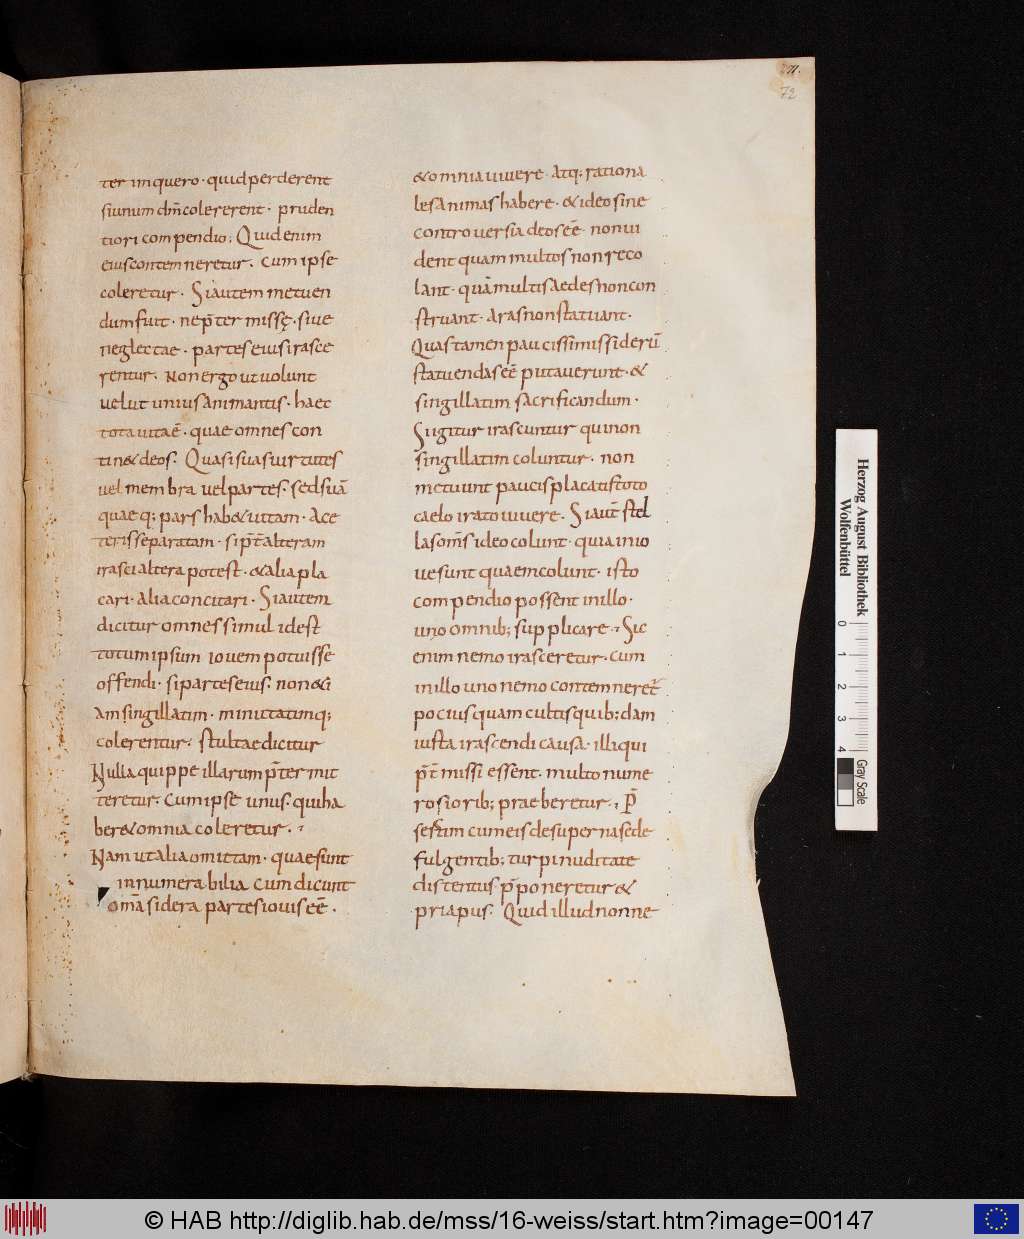 71.
72
ter inquero · quid perderent
siunum dm̄ colererent · pruden
tiori compendio; Quid enim
eius contemneretur · cum ipse
coleretur · Si autem metuen
dum fuit · nep̄ter missę · siue
neglectae · partes eius irasce
rentur · Non ergo ut uolunt
uelut unius animantis · haec
tota uita ē · quae omnes con
tin& deos · Quasi suas uirtutes
uel membra uel partes · sed si uā
quaeq; pars hab& uitam · Ace
teris separatam · si p̄t̄ altera m
irasci altera potest · & alia pla
cari · alia concitari · Si autem
dicitur omnes simul idest
totum ipsum iouem potuisse
offendi · si partes eius · non &i
am singillatim · minutatimq;
colerentur · stulta e dicitur
Nulla quippe illarum p̄ter mit
teretur · Cum ipse unus · qui ha
ber& omnia coleretur ·
Nam ut alia omittam · quae sunt
innumerabilia cum dicunt
om̄a sidera partes iouis eē ·
& omnia uiuere · Atq; rationa
les animas habere · & ideo sine
controuersia deos eē · non ui
dent quam multos non reco
lant · quā multis aedes non con
struant · aras non statuant ·
Quas tamen paucissimis siderū
statuendas eē putauerunt · &
singillatim sacrificandum ·
Si igitur irascuntur qui non
singillatim coluntur · non
metuunt paucis placatis toto
caelo irato uiuere · Si aut̄ stel
las om̄s ideo colunt · quia in io
ue sunt quaem colunt · isto
compendio possent in illo ·
uno omnib; supplicare · Sic
enim nemo irasceretur · cum
in illo uno nemo contemneret̄
pocius quam cultis quib; dam
iusta irascendi causa · illi qui
p̄t̄ missi essent · multo nume
rosiorib; praeberetur · P̄
sertim cum eis de superna sede
fulgentib; turpi nuditate
distentus p̄poneretur &
priapus · Quid illud nonne
Herzog August Bibliothek
Wolfenbüttel
0 1 2 3 4
Gray Scale
© HAB http://diglib.hab.de/mss/16-weiss/start.htm?image=00147